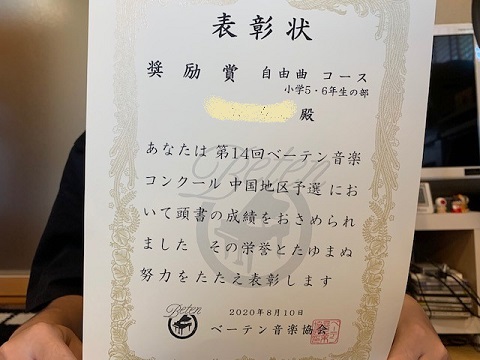 表彰状
奨励賞 自由曲 コース
小学5・6年生の部
殿
あなたは 第14回ベーテン音楽
コンクール 中国地区予選 にお
いて頭書の成績をおさめられ
ました その栄誉とたゆまぬ
努力をたたえ表彰します
Beten
Beten
2020年8月10日
ベーテン音楽協会